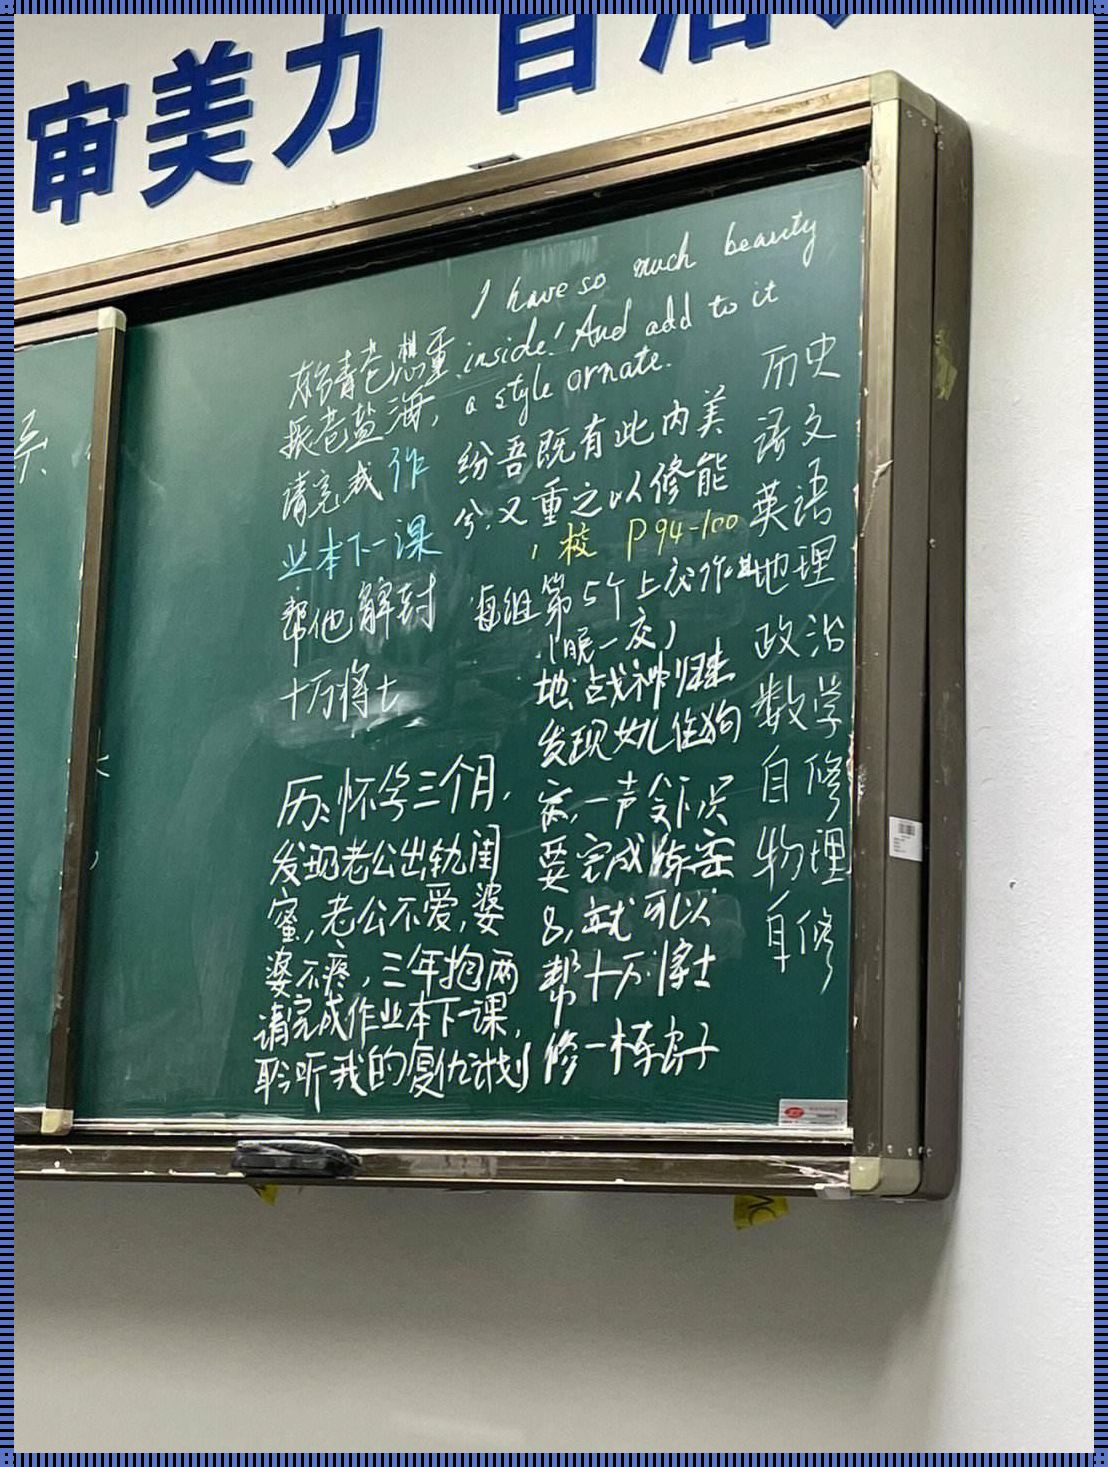 审美力 自治
I have so much beauty
inside! And add to it
a style ornate.
纷吾既有此内美
兮,又重之以修能
校 P94-100
每组第5个上交作业
地:战神归来
发现女儿住狗
窝,一声令下只
要完成练案
8,就可以
帮十万将士
修一栋房子
想重
振老盐海,
请完成作
业本下一课
帮他解封
十万将士
历:怀孕三个月,
发现老公出轨闺
蜜,老公不爱,婆
婆不疼,三年抱两
请完成作业本下一课,
聆听我的复仇计划
历史
语文
英语
地理
政治
数学
自修
物理
自修